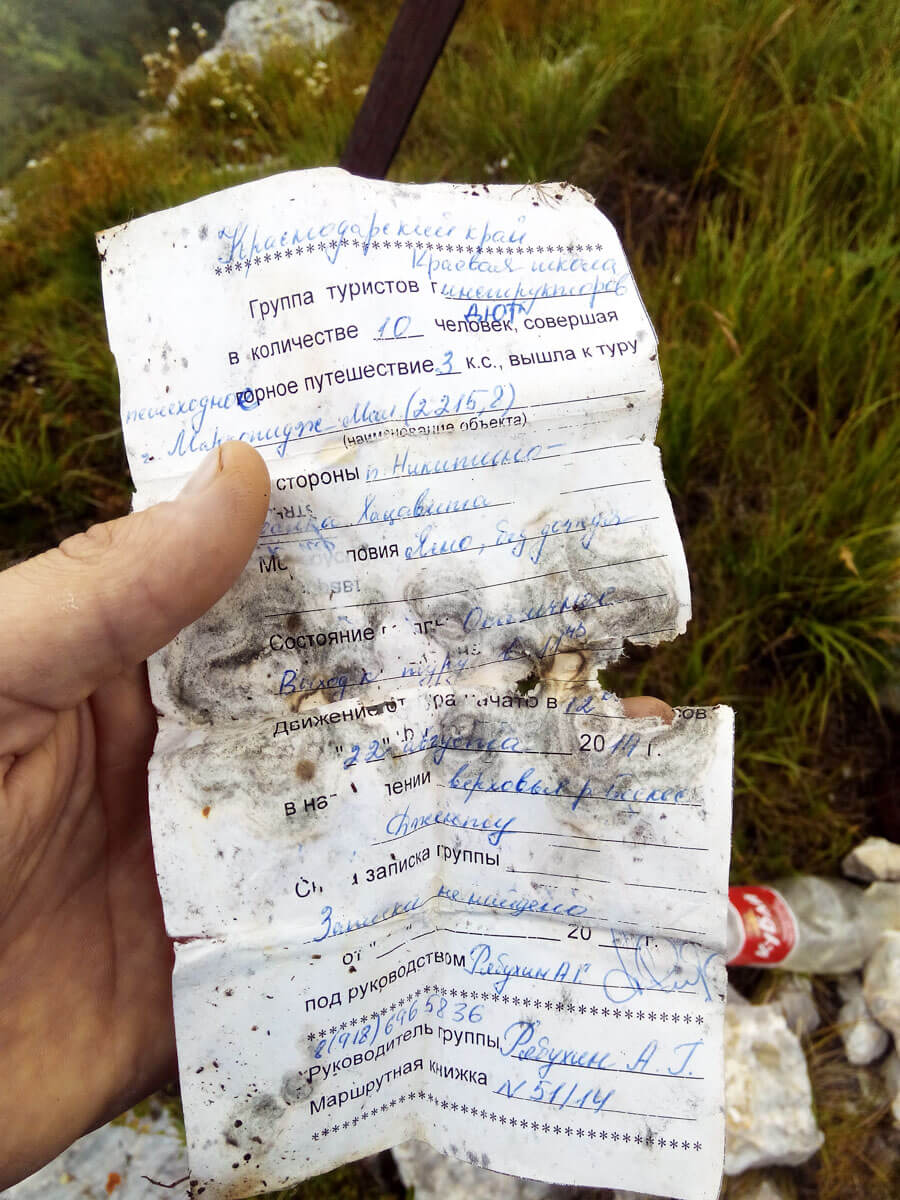 Краснодарский край
**********************************
Краевая школа
Группа туристов г инструкторов
ДЮТ
в количестве 10 человек, совершая
горное путешествие 3 к.с., вышла к туру
пешеходное
г. (2215,8)
(наименование объекта)
стороны п. Никитино-
Хацавита
условия Ясно, без дождя
Состояние Отличное
Выход к туру в
Движение от тура начато в 12
"22" августа 2014 г.
в на лении верховья р.
записка группы
Записки не найдено
от " 20 г.
под руководством Рябухин А.Г.
**********************************
8(918)6965836
Руководитель группы Рябухин А.Г.
Маршрутная книжка N 51/14
**********************************
КУБАЙ